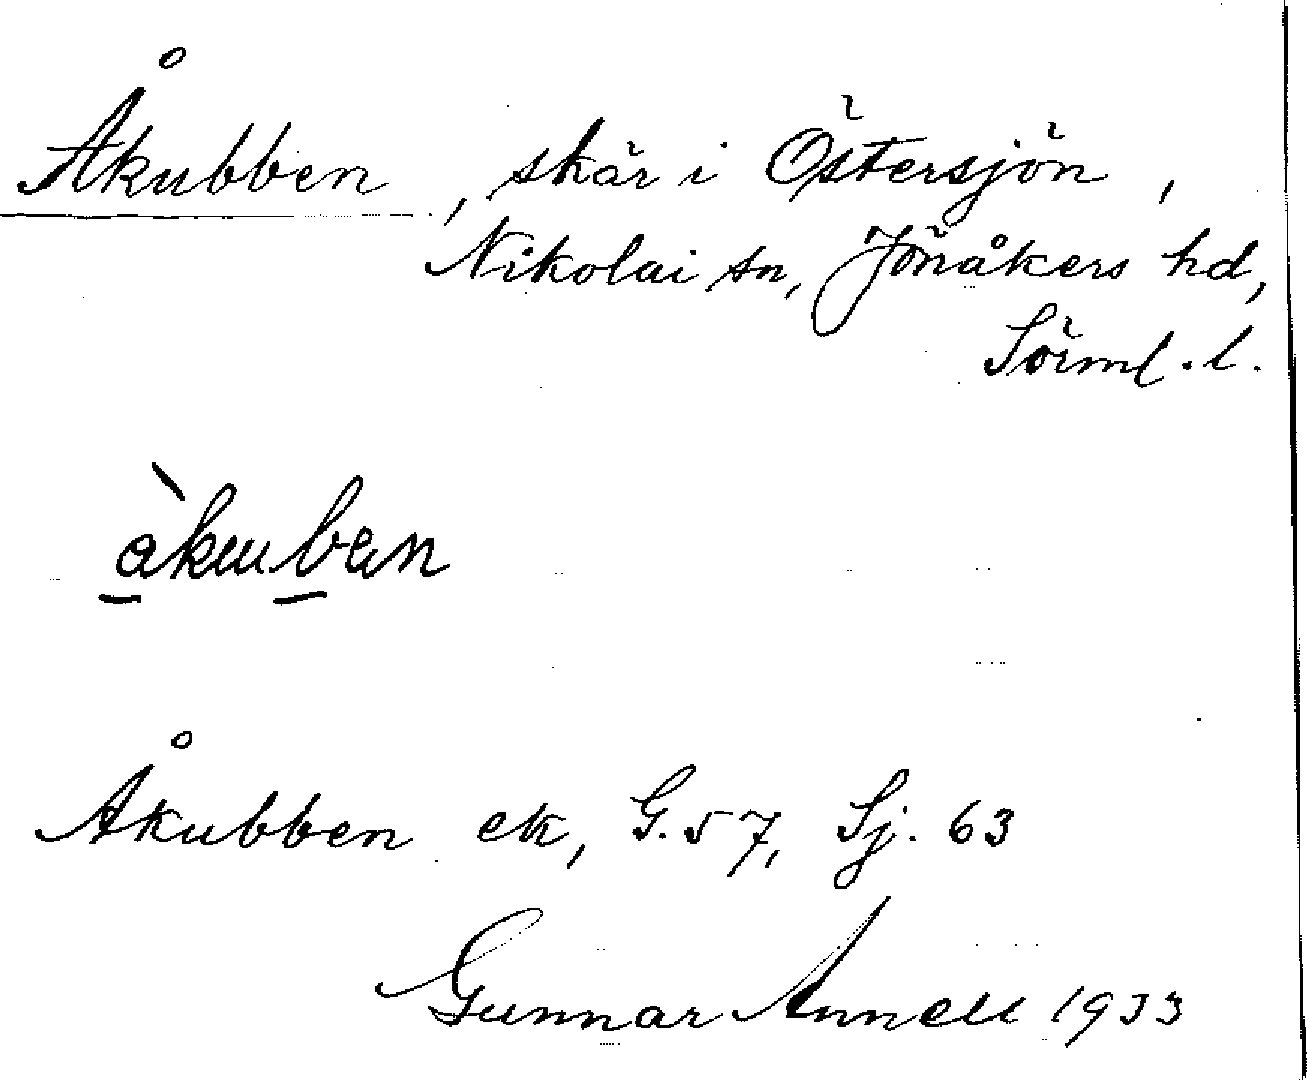 Åkubben, skär i Östersjön,
Nikolai sn, Jönåkers hd,
Sörml. l.
àkuban
Åkubben ek, G. 57, Sj. 63
Gunnar Annell 1933